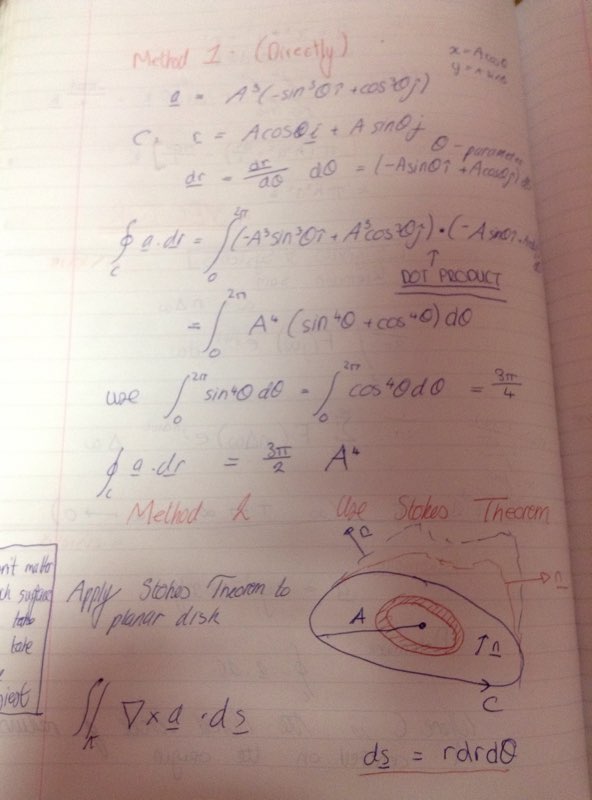 Method 1 - (Directly)
x = Acosθ
a = A³(-sin³θi + cos³θj)
C: r = Acosθi + A sinθj
θ - parameter
dr = dr/dθ dθ = (-Asinθi + Acosθj)
∮c a·dr = ∫₀^2π (-A³sin³θi + A³cos³θj)·(-Asinθi +
↑
DOT PRODUCT
= ∫₀^2π A⁴ (sin⁴θ + cos⁴θ) dθ
use ∫₀^2π sin⁴θ dθ = ∫₀^2π cos⁴θ dθ = 3π/4
∮c a·dr = 3π/2 A⁴
Method 2 Use Stokes Theorem
n
n
Apply Stokes Theorem to
planar disk
n't matter
surface
take
A
n
C
∬ ∇×a · ds
ds = rdrdθ